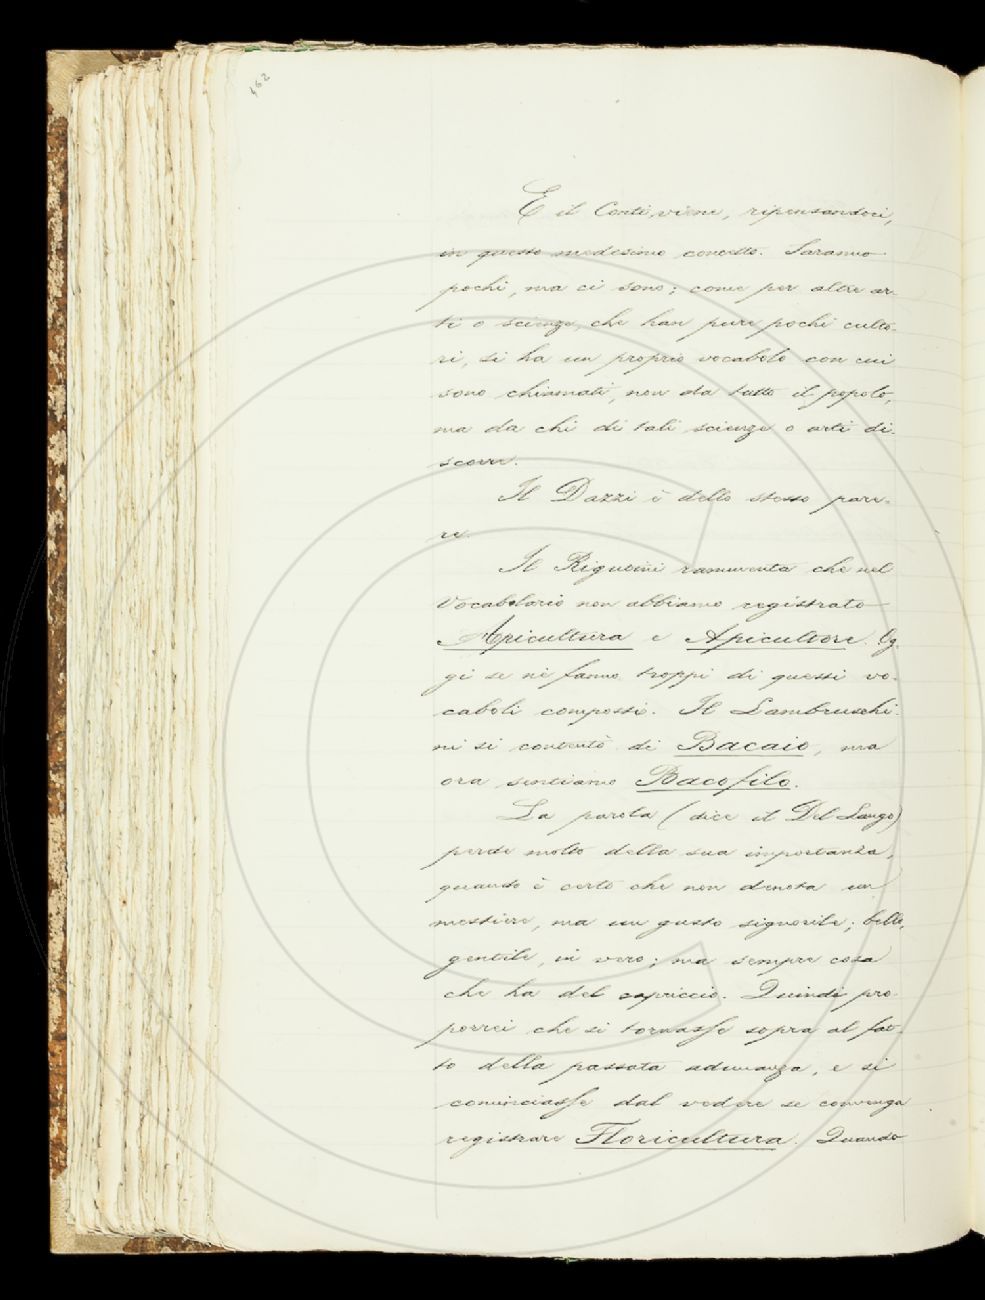 462
E il Conti viene, ripensandoci,
in questo medesimo concetto. Saranno
pochi, ma ci sono; come per altre ar-
ti o scienze, che han pure pochi culto-
ri, si ha un proprio vocabolo con cui
sono chiamati, non da tutto il popolo,
ma da chi di tali scienze o arti di-
scorre.
Il Dazzi è dello stesso pare-
re.
Il Rigutini rammenta che nel
Vocabolario non abbiamo registrato
Apicultura e Apicultore. Og-
gi se ne fanno troppi di questi vo-
caboli composti. Il Lambruschi-
ni si contentò di Bacaio, ma
ora sentiamo Bacofilo.
La parola (dice il Del Lungo)
perde molto della sua importanza,
quando è certo che non denota un
mestiere, ma un gusto signorile; bello,
gentile, in vero; ma sempre cosa
che ha del capriccio. Quindi pro-
porrei che si tornasse sopra al fat-
to della passata adunanza, e si
cominciasse dal vedere se convenga
registrare Floricultura. Quando